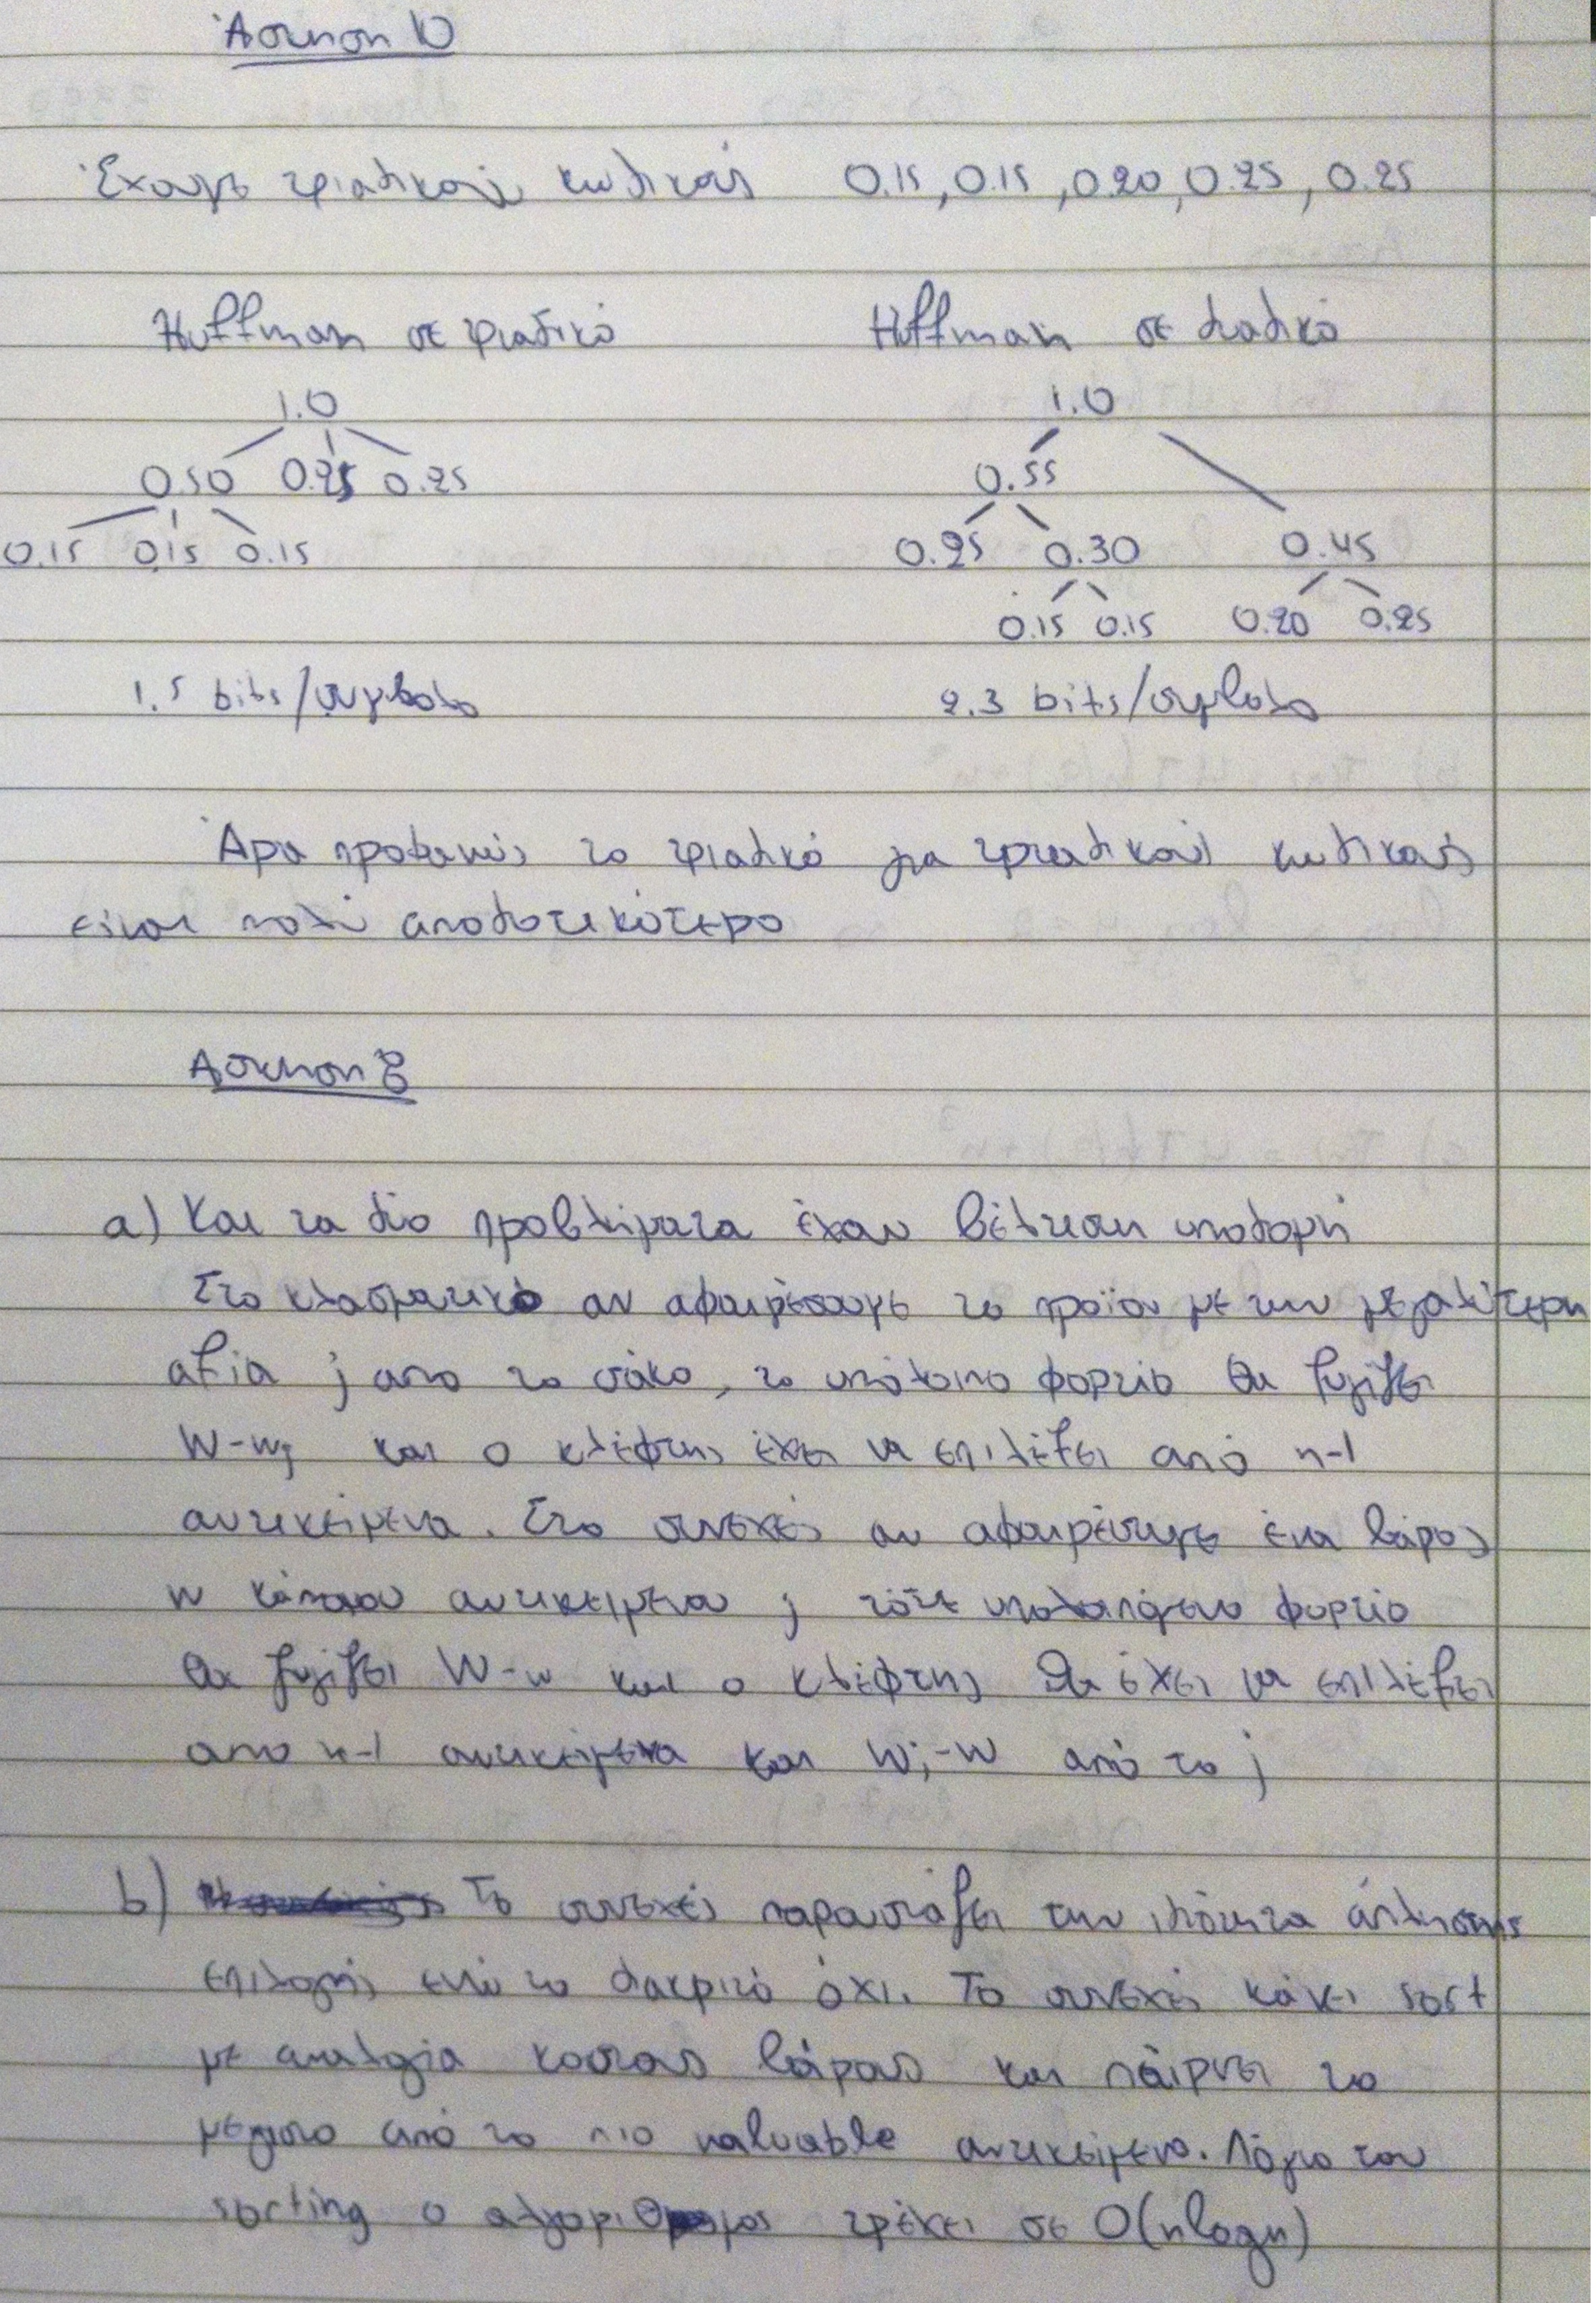 Άσκηση 10
Έχουμε τριαδικούς κωδικούς 0.15, 0.15, 0.20, 0.25, 0.25
Huffman σε τριαδικό Huffman σε διαδικό
1.0 1.0
0.50 0.25 0.25 0.55
0.15 0.15 0.15 0.25 0.30 0.45
0.15 0.15 0.20 0.25
1.5 bits/συμβολο 2.3 bits/συμβολο
Άρα προφανώς το τριαδικό για τριαδικούς κωδικούς
είναι πολύ αποδοτικότερο
Άσκηση
a) Και τα δύο προβλήματα έχουν βέλτιστη υποδομή
Στο κλασματικό αν αφαιρέσουμε το προϊον με την μεγαλύτερη
αξία j απο το σάκο, το υπόλοιπο φορτίο θα ζυγίζει
W-wj και ο κλέφτης έχει να επιλέξει από n-1
αντικείμενα. Στο συνεχές αν αφαιρέσουμε ένα βάρος
w κάποιου αντικειμένου j τότε υπολοιπόμενο φορτίο
θα ζυγίζει W-w και ο κλέφτης θα έχει να επιλέξει
απο n-1 αντικείμενα και wj-w από το j
b) Το συνεχές παρουσιάζει την ιδιότητα άπληστης
επιλογής ενώ το διακριτό όχι. Το συνεχές κάνει sort
με αναλογία κοστους βάρους και παίρνει το
μέγιστο από το πιο valuable αντικείμενο. Λόγω του
sorting ο αλγοριθμος τρέχει σε O(nlogn)